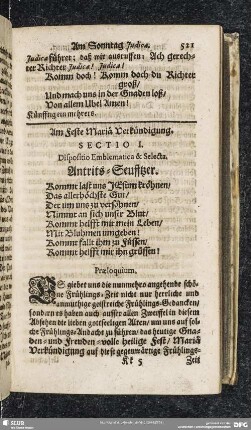 Am Sonntag Judica. 521
Judica führet; daß wir ausruffen: Ach gerech-
ter Richter Judica! Judica!
Komm doch! Komm doch du Richter
groß/
Und mach uns in der Gnaden loß/
Von allem Ubel Amen!
Künfftig ein mehrers.
Am Feste Mariä Verkündigung.
SECTIO I.
Dispositio Emblematica & Selecta.
Antrits-Seufftzer.
Kommt last uns JEsum kröhnen/
Das allerhöchste Gut/
Der um uns zu versöhnen/
Nimmt an sich unser Blut/
Kommt helfft mir mein Leben/
Mit Bluhmen umgeben!
Kommt fallt ihm zu Füssen/
Kommt helfft mir ihn grüssen!
Præloquium.
ES giebet uns die nunmehro angehende schö-
ne Frühlings-Zeit nicht nur herrliche und
anmuthige geistreiche Frühlings-Gedancken/
sondern es haben auch ausser allen Zweiffel in diesem
Absehen die lieben gottseeligen Alten/ um uns auf sol-
che Frühlings-Andacht zu führen/ das heutige Gna-
den- und Freuden-volle heilige Fest/ Mariä
Verkündigung auf diese gegenwärtige Frühlings-
Kk 5 Zeit
SLUB
DFG